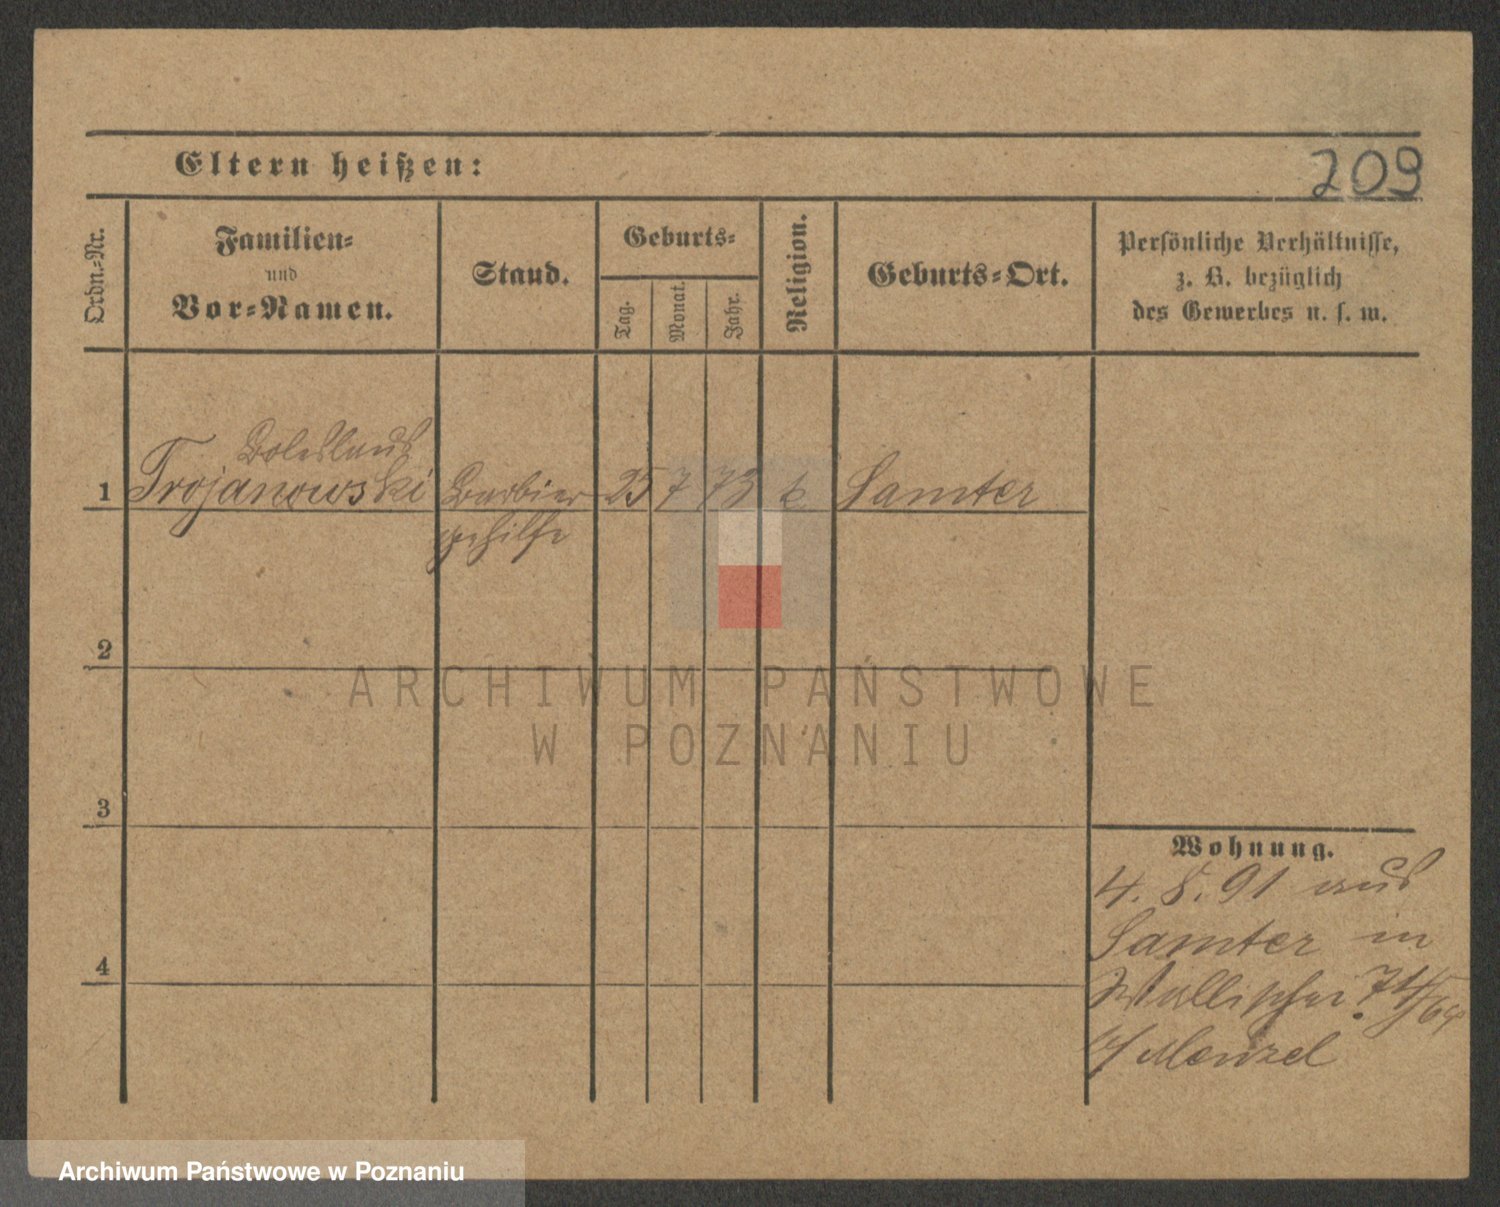 Eltern heißen:
209
Ordn.-Nr.
Familien-
und
Vor-Namen.
Stand.
Geburts-
Tag.
Monat.
Jahr.
Religion.
Geburts-Ort.
Persönliche Verhältnisse,
z. B. bezüglich
des Gewerbes u. s. w.
Boleslaus
1 Trojanowski Barbier 25 7 73 k. Samter
gehilfe
2
3
4
Wohnung.
4. 8. 91 aus
Samter in
Wallischei 74/
b/ Menzel
ARCHIWUM PAŃSTWOWE
W POZNANIU
Archiwum Państwowe w Poznaniu